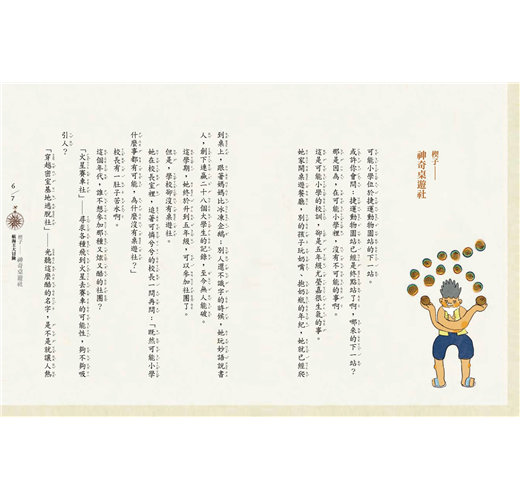 楔子——
神奇桌遊社
可能小學位於捷運動物園站的下一站。
或許你會問：捷運動物園站已經是終點站了啊，哪來的下一站？
那是因為，在可能小學裡，沒有不可能的事啊。
這是可能小學的校訓，卻是五年級尤瑩嘉很生氣的事。
她家開桌遊餐廳，別的孩子玩奶嘴、抱奶瓶的年紀，她就已經爬
到桌上，跟著媽媽比冰凍企鵝；別人還不識字的時候，她玩妙語說書
人，創下連贏二十八個大學生的記錄，至今無人能破。
這學期，她終於升到五年級，可以參加社團了。
但是，學校卻沒有桌遊社。
她在校長室裡，追著可憐兮兮的校長一問再問：「既然可能小學
什麼事都有可能，為什麼沒有桌遊社？」
校長有一肚子苦水啊。
這個年代，誰不想參加那種又炫又酷的社團？
「火星賽車社」——尋求各種飛到火星去賽車的可能性，夠不夠吸
引人？
「穿越密室基地逃脫社」——光聽這麼酷的名字，是不是就讓人熱
6／7
楔子——神奇桌遊社